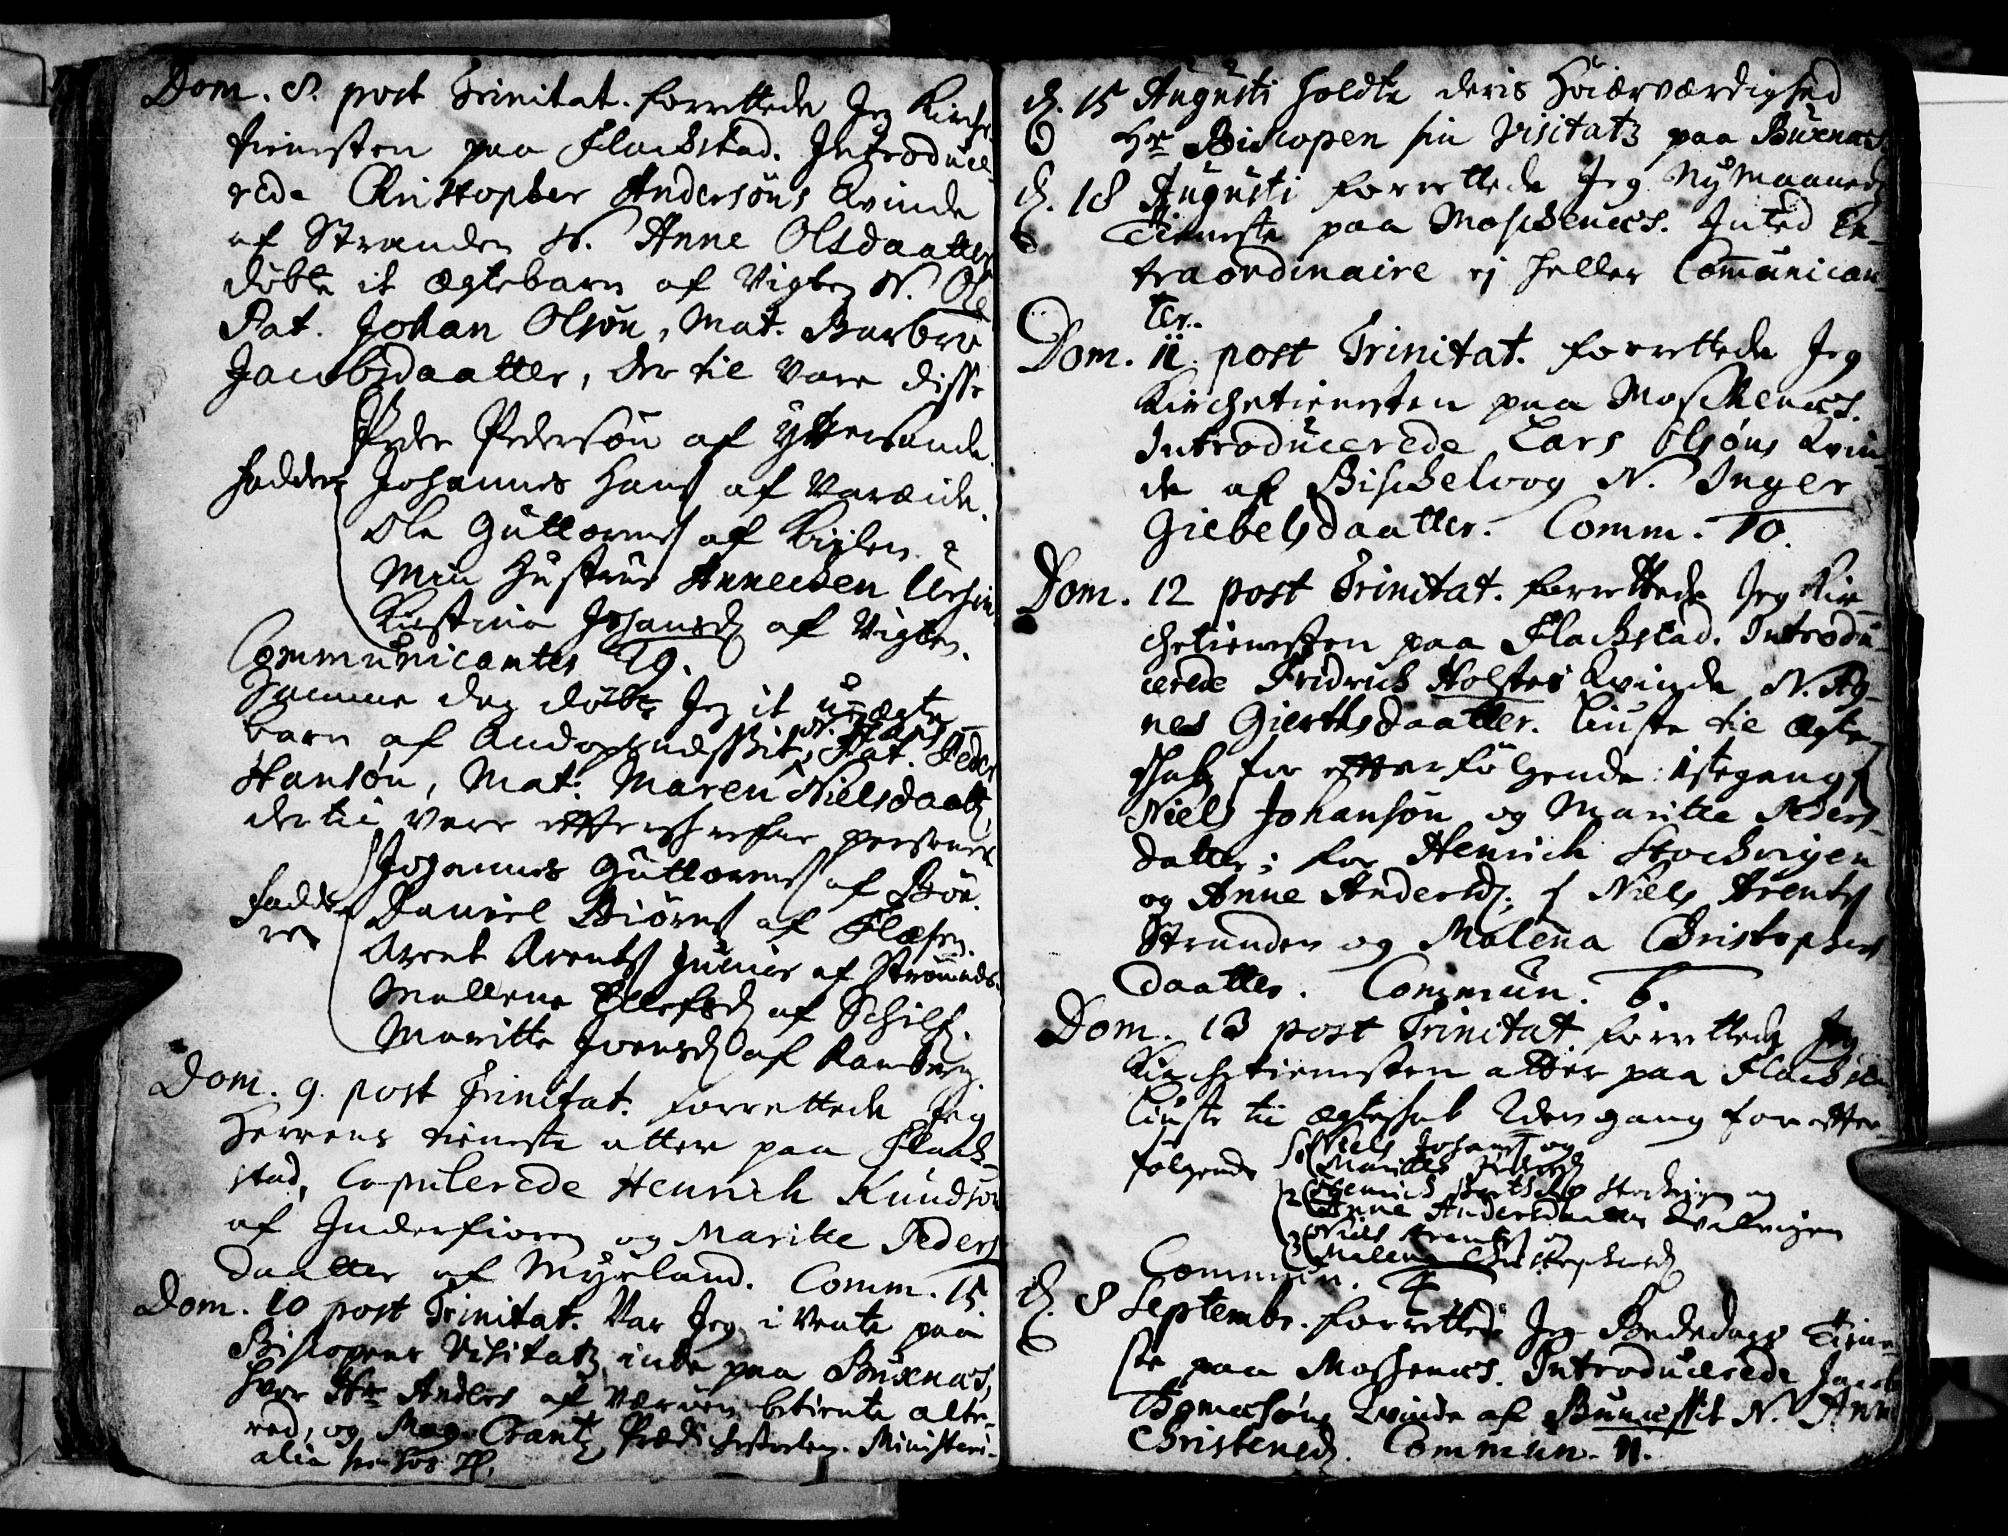 Dom. 8. post Trinitat. forrettede Jeg Kirche
tienesten paa Flackstad. Introduce-
rede Christopher Andersøns Kvinde
af Stranden N. Anne Olsdaatter
døbte it Ægtebarn af Vigten N. Ole
Pat. Johan Olsøn, Mat. Barbro
Jacobsdaatter, der til vare disse
Peder Pedersøn af Yttersande.
Fadder Johannes Hans af Vareide.
Ole Guttorms af Kiilen
Min Hustrue Annecken Ursin
Kirstina Johansd af Vigten.
Communicantes 29.
Samme dag døbte Jeg it uægte
barn af Andopsnæsset, N. Hans Pat. Peder
Hansøn, Mat. Maren Nielsdaatter,
dertil vare efterskrefne personer
Johannes Guttorms af Bøn.
Fadde- Daniel Biørns af Flæsen
rer Arent Arents Junior af Strømnds.
Mallene Ellefsd af Schielf.
Maritte Iversd af Ramberg.
Dom. 9. post Trinitat. forrettede Jeg
Herrens tieneste atter paa Flack-
stad, Copulerede Henrich Knudsøn
af Inderfioren og Maritte Peders
daatter af Myrland. Comm. 15.
Dom. 10 post Trinitat. Var Jeg i Vente paa
Biskopens Visitatz inde paa Buxnæs,
hvor Hr Anders af Værøen betiente alte-
red, og Mag. Crantz Prædickestolen. Ministeri-
alia
d. 15 Augusti holdte deris Høiærværdighed
Hr Biskopen sin Visitatz paa Buxnæs
d. 18 Augusti forrettede Jeg NyMaaneds
Tieneste paa Moschenæs. Inted Ex-
traordinaire ej heller Communican-
ter.
Dom. 11. post Trinitat. forrettede Jeg
Kirchetienesten paa Moschenæs.
Introducerede Lars Olsøns Kvin-
de af Bischelvog N. Inger
Giebelsdaatter. Comm. 10.
Dom. 12 post Trinitat. forrettede Jeg Kir-
chetienesten paa Flackstad. Introdu-
cerede Fridrich Holstes Kvinde N. Ag-
nes Gierthsdaatter. Liuste til Ægte-
skab for efterfølgende: 1stegang
Niels Johansøn og Maritte Peders-
datter; for Henrich Stockvigen
og Anne Andersd; f Niels Arents
Strunden og Malena Christophers
daatter. Commun. 6.
Dom. 13 post Trinitat. forrettede Jeg
Kirchetienesten atter paa Flackstad
Liuste til Ægteskab 2den gang for efter-
følgende 1 Niels Johans og
Maritte Pedersd
2 Henrich Barthels Stockvigen og
Anne Andersdaatter Kvalvigen
3 Niels Arents og
Malena Christophersd
Commun. 4
d. 8 Septembr. forrettede Jeg Bededags Tiene-
ste paa Moschenæs. Introducerede Jacob
Thomæsøns Kvinde af Bunæsset N. Anne
Christensd. Commun. 11.